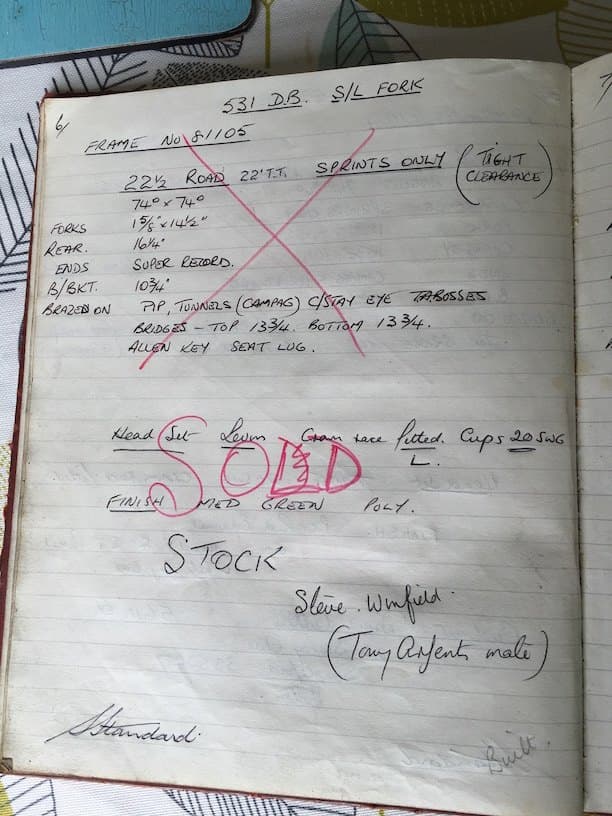 531 D.B. S/L FORK
6/
FRAME NO 81105
22½ ROAD 22" T.T. SPRINTS ONLY (TIGHT CLEARANCE)
74° x 74°
FORKS 1⅝" x 14½"
REAR. 16¼"
ENDS SUPER RECORD.
B/BKT. 10¾"
BRAZED ON P/P, TUNNELS (CAMPAG) C/STAY EYE TABOSSES
BRIDGES - TOP 13¾. BOTTOM 13¾.
ALLEN KEY SEAT LUG.
Head Set Levin Crown race fitted. Cups 20 SWG
L.
SOLD
FINISH MED GREEN POLY.
STOCK
Steve. Winfield.
(Tony Argents mate)
Standard.
Built.